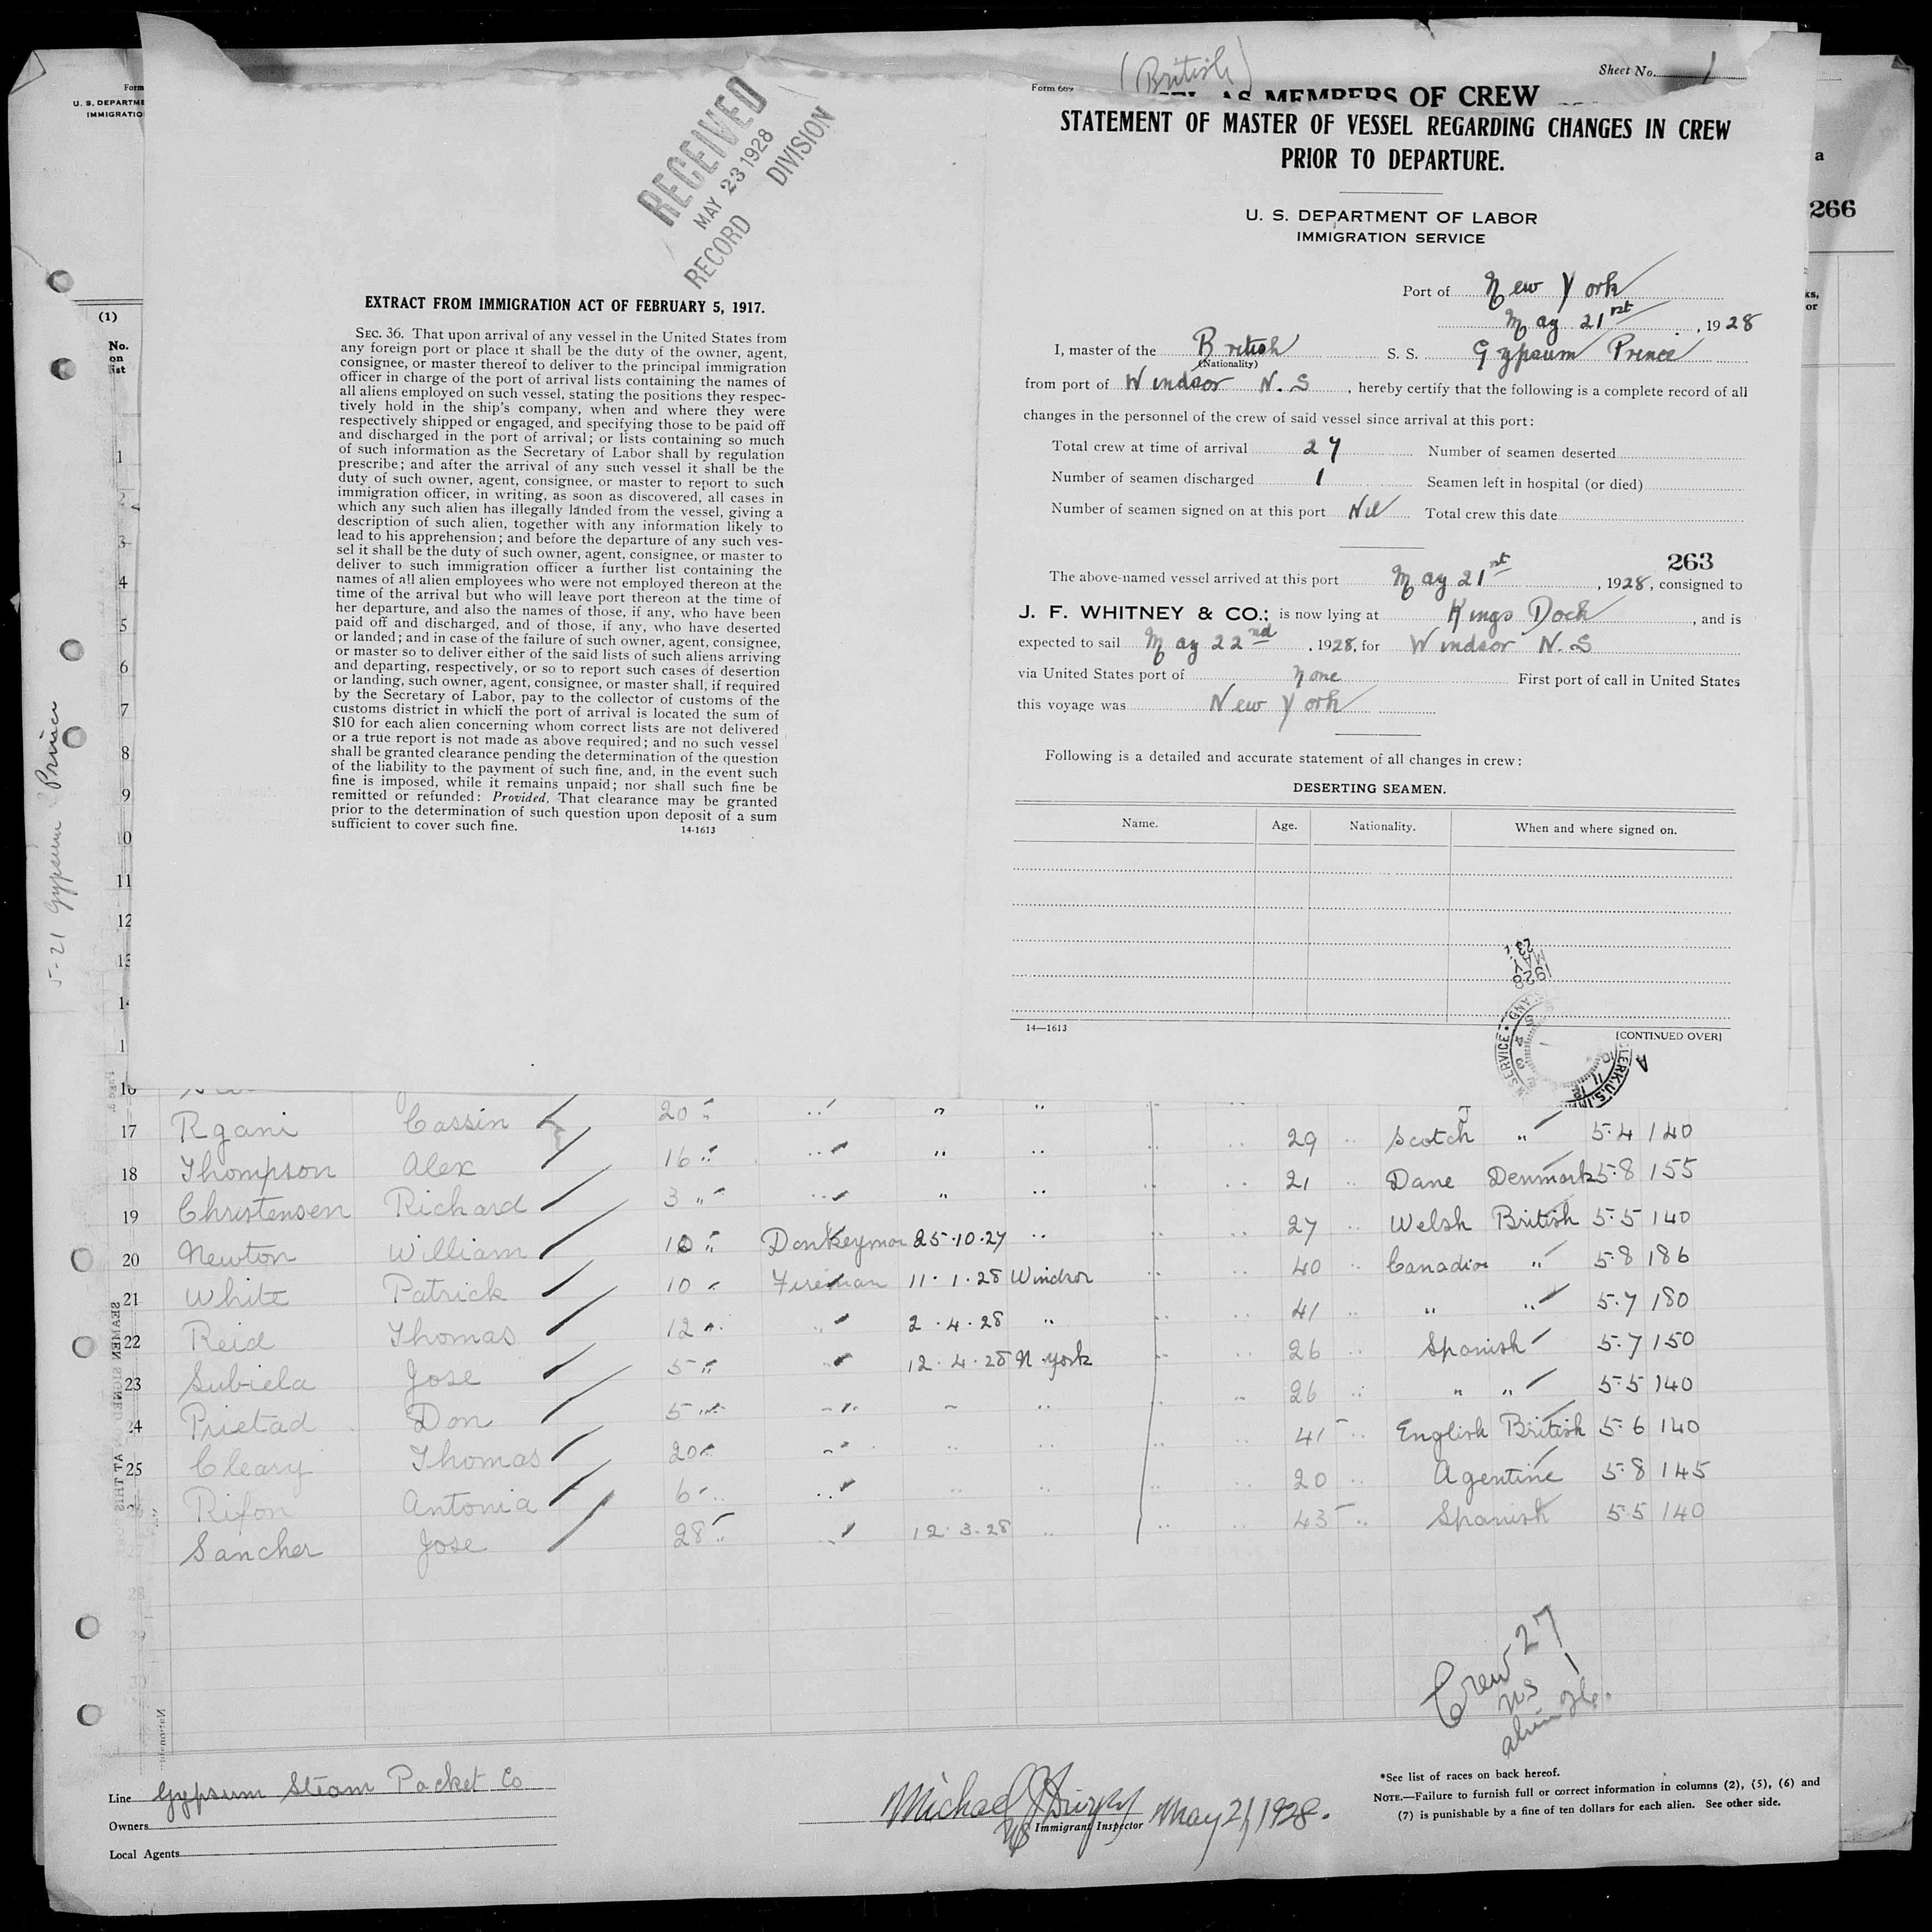 Form
U. S. DEPARTME
IMMIGRATIO
(1)
No.
on
list
5-21 Gypsum Prince
RECEIVED
MAY 23 1928
RECORD DIVISION
EXTRACT FROM IMMIGRATION ACT OF FEBRUARY 5, 1917.
SEC. 36. That upon arrival of any vessel in the United States from
any foreign port or place it shall be the duty of the owner, agent,
consignee, or master thereof to deliver to the principal immigration
officer in charge of the port of arrival lists containing the names of
all aliens employed on such vessel, stating the positions they respec-
tively hold in the ship's company, when and where they were
respectively shipped or engaged, and specifying those to be paid off
and discharged in the port of arrival; or lists containing so much
of such information as the Secretary of Labor shall by regulation
prescribe; and after the arrival of any such vessel it shall be the
duty of such owner, agent, consignee, or master to report to such
immigration officer, in writing, as soon as discovered, all cases in
which any such alien has illegally landed from the vessel, giving a
description of such alien, together with any information likely to
lead to his apprehension; and before the departure of any such ves-
sel it shall be the duty of such owner, agent, consignee, or master to
deliver to such immigration officer a further list containing the
names of all alien employees who were not employed thereon at the
time of the arrival but who will leave port thereon at the time of
her departure, and also the names of those, if any, who have been
paid off and discharged, and of those, if any, who have deserted
or landed; and in case of the failure of such owner, agent, consignee,
or master so to deliver either of the said lists of such aliens arriving
and departing, respectively, or so to report such cases of desertion
or landing, such owner, agent, consignee, or master shall, if required
by the Secretary of Labor, pay to the collector of customs of the
customs district in which the port of arrival is located the sum of
$10 for each alien concerning whom correct lists are not delivered
or a true report is not made as above required; and no such vessel
shall be granted clearance pending the determination of the question
of the liability to the payment of such fine, and, in the event such
fine is imposed, while it remains unpaid; nor shall such fine be
remitted or refunded: Provided, That clearance may be granted
prior to the determination of such question upon deposit of a sum
sufficient to cover such fine. 14-1613
(British)
Sheet No. 1
Form 689
AS MEMBERS OF CREW
STATEMENT OF MASTER OF VESSEL REGARDING CHANGES IN CREW
PRIOR TO DEPARTURE.
U. S. DEPARTMENT OF LABOR
IMMIGRATION SERVICE
266
Port of New York
May 21rst, 1928
I, master of the British S. S. Gypsum Prince
(Nationality)
from port of Windsor N. S, hereby certify that the following is a complete record of all
changes in the personnel of the crew of said vessel since arrival at this port:
Total crew at time of arrival 27 Number of seamen deserted
Number of seamen discharged 1 Seamen left in hospital (or died)
Number of seamen signed on at this port Nil Total crew this date
263
The above-named vessel arrived at this port May 21rst, 1928, consigned to
J. F. WHITNEY & CO.; is now lying at Kings Dock, and is
expected to sail May 22nd, 1928, for Windsor N. S
via United States port of None First port of call in United States
this voyage was New York
Following is a detailed and accurate statement of all changes in crew:
DESERTING SEAMEN.
Name. Age. Nationality. When and where signed on.
MAY 23 1928
14—1613
[CONTINUED OVER]
1
2
3
4
5
6
7
8
9
10
11
12
13
14
1
16
17 Rgani Cassin 20 " " " "
18 Thompson Alex 16 " " " " 29 " Scotch " 5.4 140
19 Christensen Richard 3 " " " " 21 " Dane Denmark 5.8 155
20 Newton William 10 " Donkeyman 25.10.27 " 27 " Welsh British 5.5 140
21 White Patrick 10 " Fireman 11.1.28 Windsor 40 " Canadian " 5.8 186
22 Reid Thomas 12 " " 2.4.28 " 41 " " " 5.7 180
23 Subiela Jose 5 " " 12.4.28 N. York 26 " Spanish 5.7 150
24 Prietad Don 5 " " " " 26 " " " 5.5 140
25 Cleary Thomas 20 " " " " 41 " English British 5.6 140
26 Rifon Antonia 6 " " " " 20 " Agentine 5.8 145
Sancher Jose 28 " " 12.3.28 " 43 " Spanish 5.5 140
28
29
30
Crew 27
US 1
alien 26
Line Gypsum Steam Packet Co
Owners
Local Agents
Michael J
US Immigrant Inspector May 21, 1928.
*See list of races on back hereof.
NOTE.—Failure to furnish full or correct information in columns (2), (5), (6) and
(7) is punishable by a fine of ten dollars for each alien. See other side.